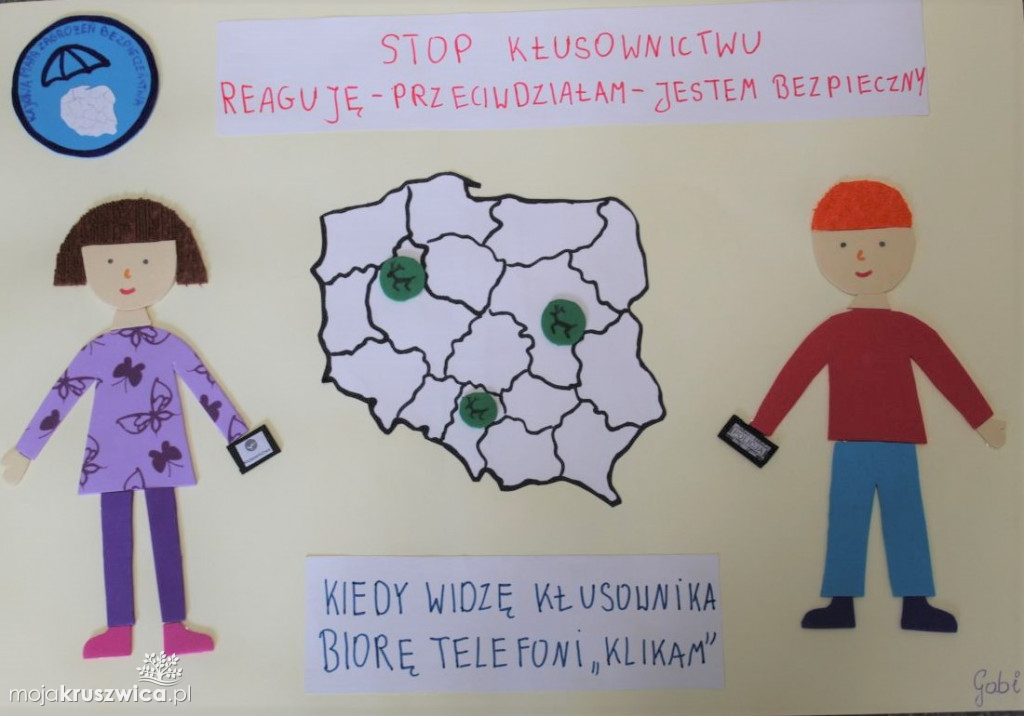 KRAJOWA MAPA ZAGROŻEŃ BEZPIECZEŃSTWA
STOP KŁUSOWNICTWU
REAGUJĘ - PRZECIWDZIAŁAM - JESTEM BEZPIECZNY
KIEDY WIDZĘ KŁUSOWNIKA
BIORĘ TELEFON I „KLIKAM”
Gabi
mojakruszwica.pl